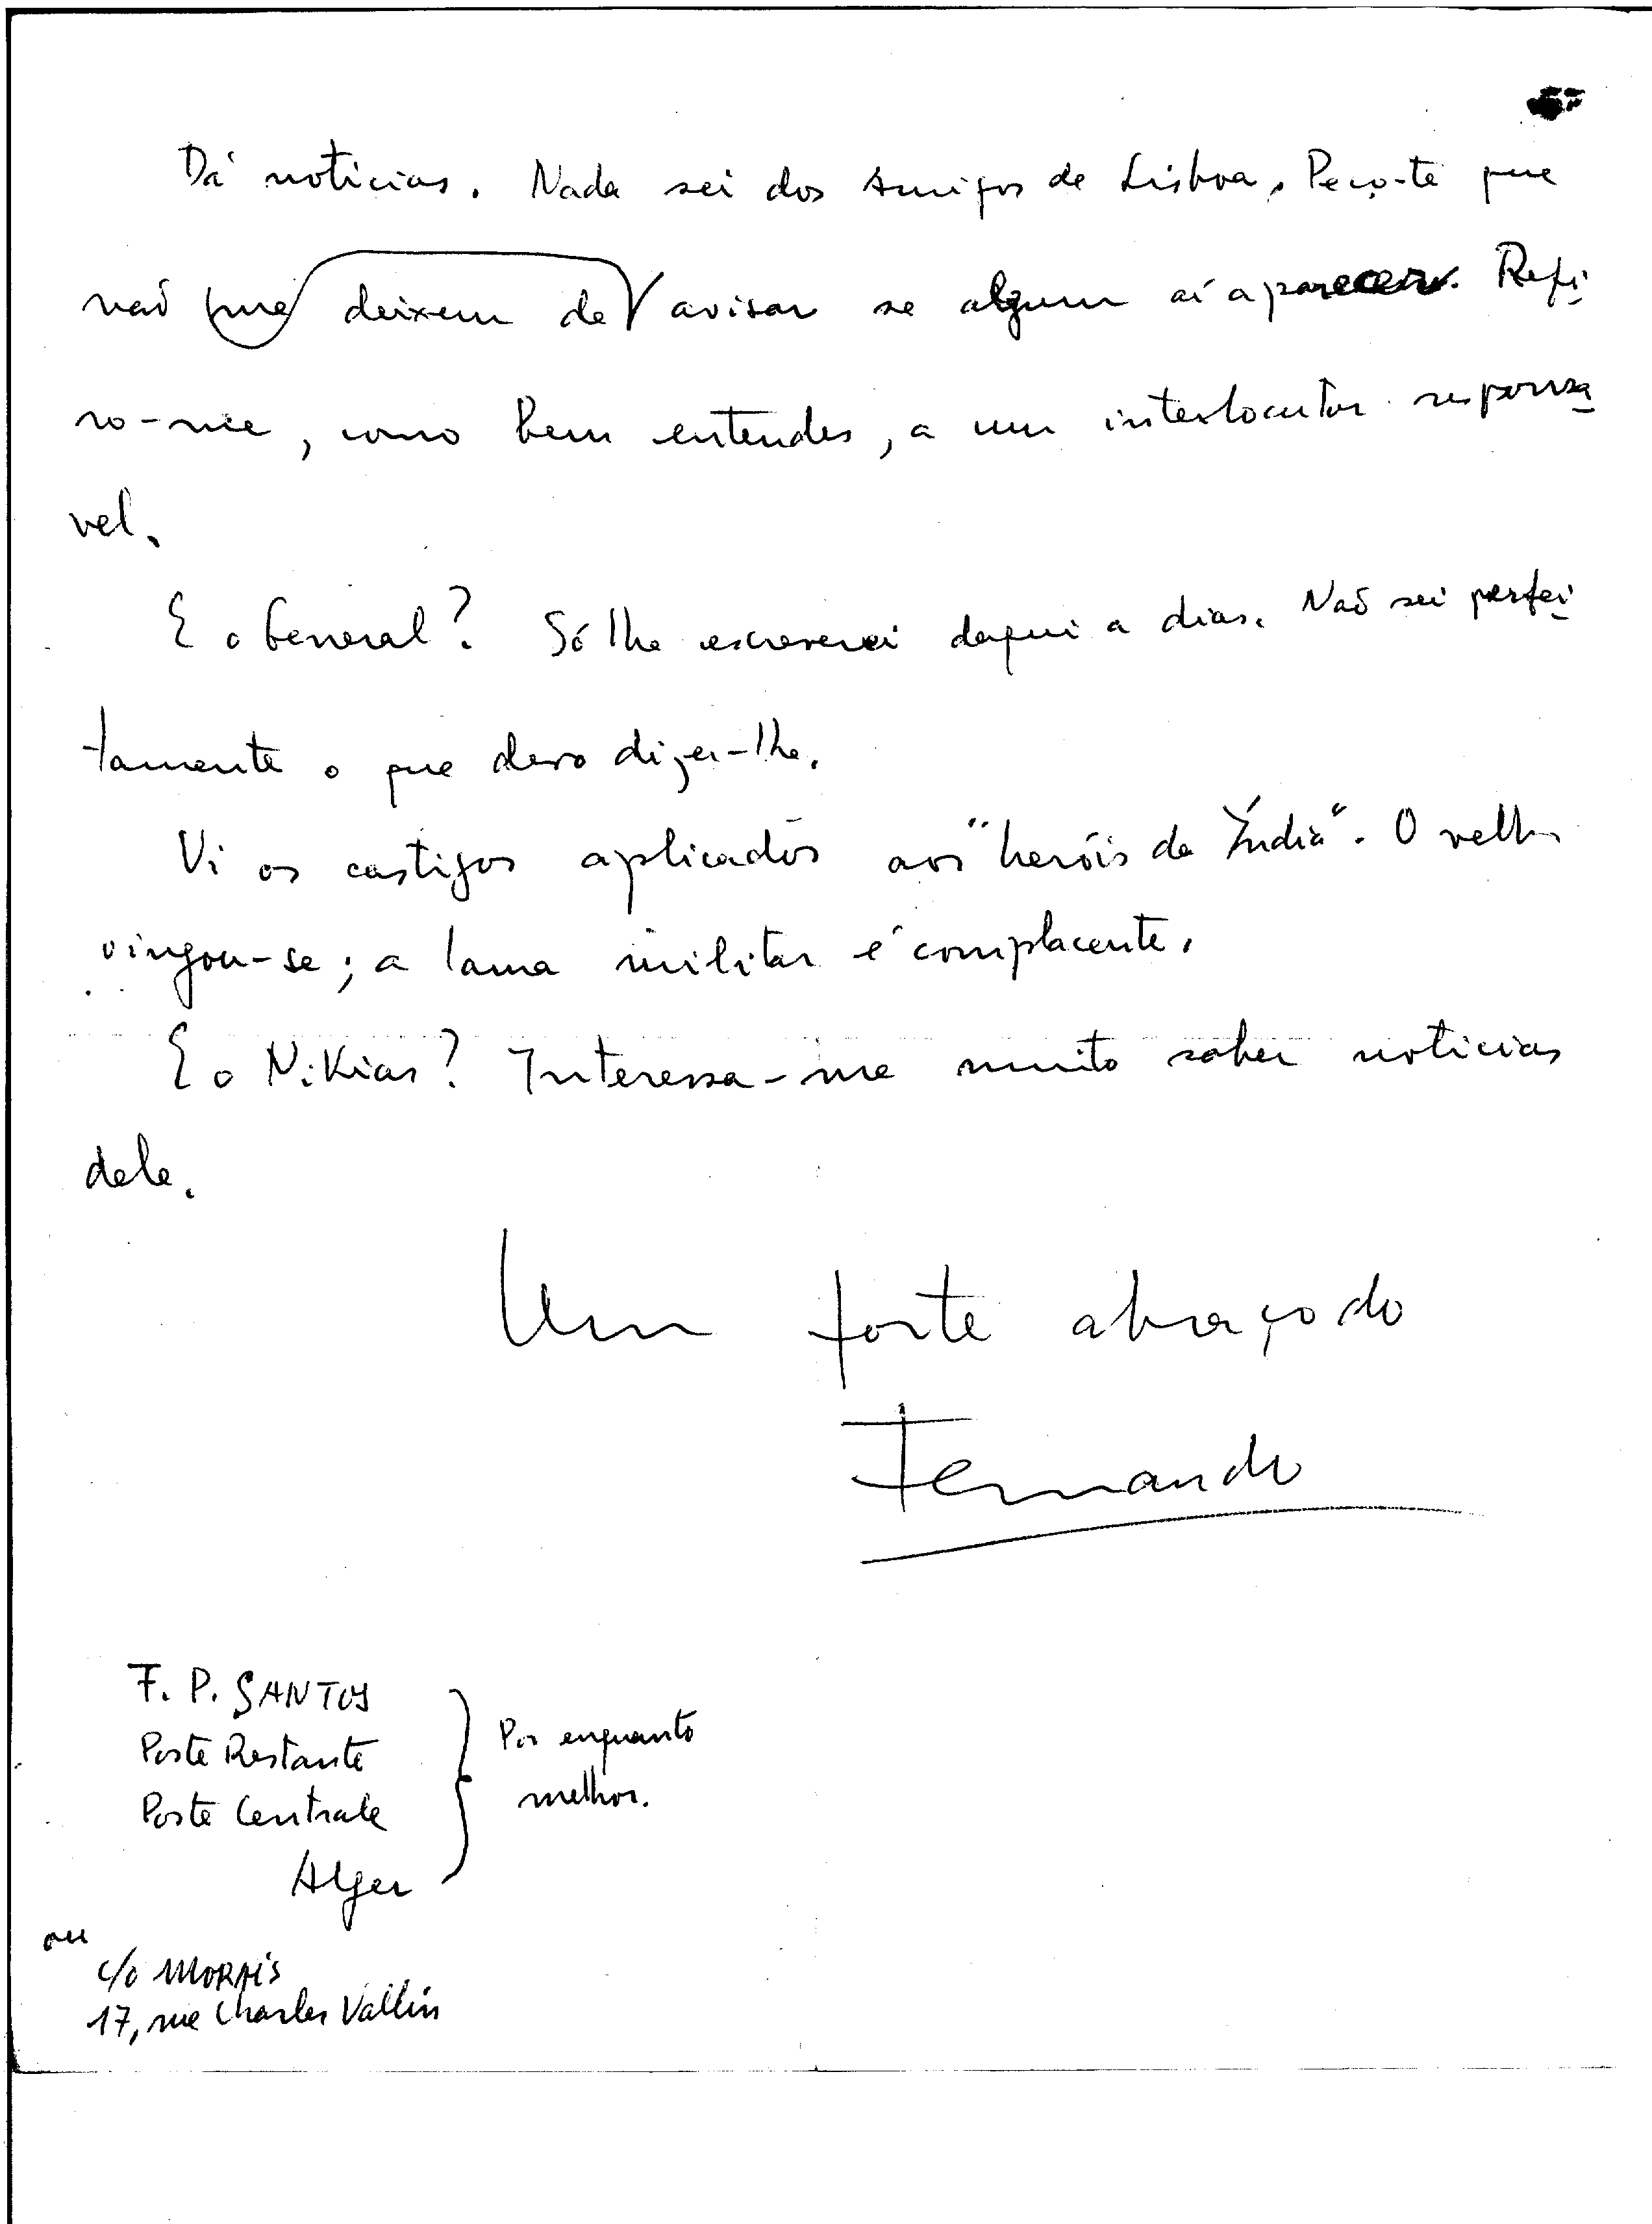 Dá noticias. Nada sei dos Amigos de Lisboa. Peço-te que
não me deixem de avisar se algum aí aparecer. Refi
ro-me, como bem entendes, a um interlocutor responsá
vel.
E o General? Só lhe escreverei daqui a dias. Não sei perfei
tamente o que devo dizer-lhe.
Vi os castigos aplicados aos "heróis da Índia". O velho
vingou-se; a lama militar é complacente.
E o Nikias? Interessa-me muito saber noticias
dele.
Um forte abraço do
Fernando
F. P. SANTOS
Poste Restante
Poste Centrale
Alger
Por enquanto
melhor.
ou
c/o MORAIS
17, rue Charles Vallin